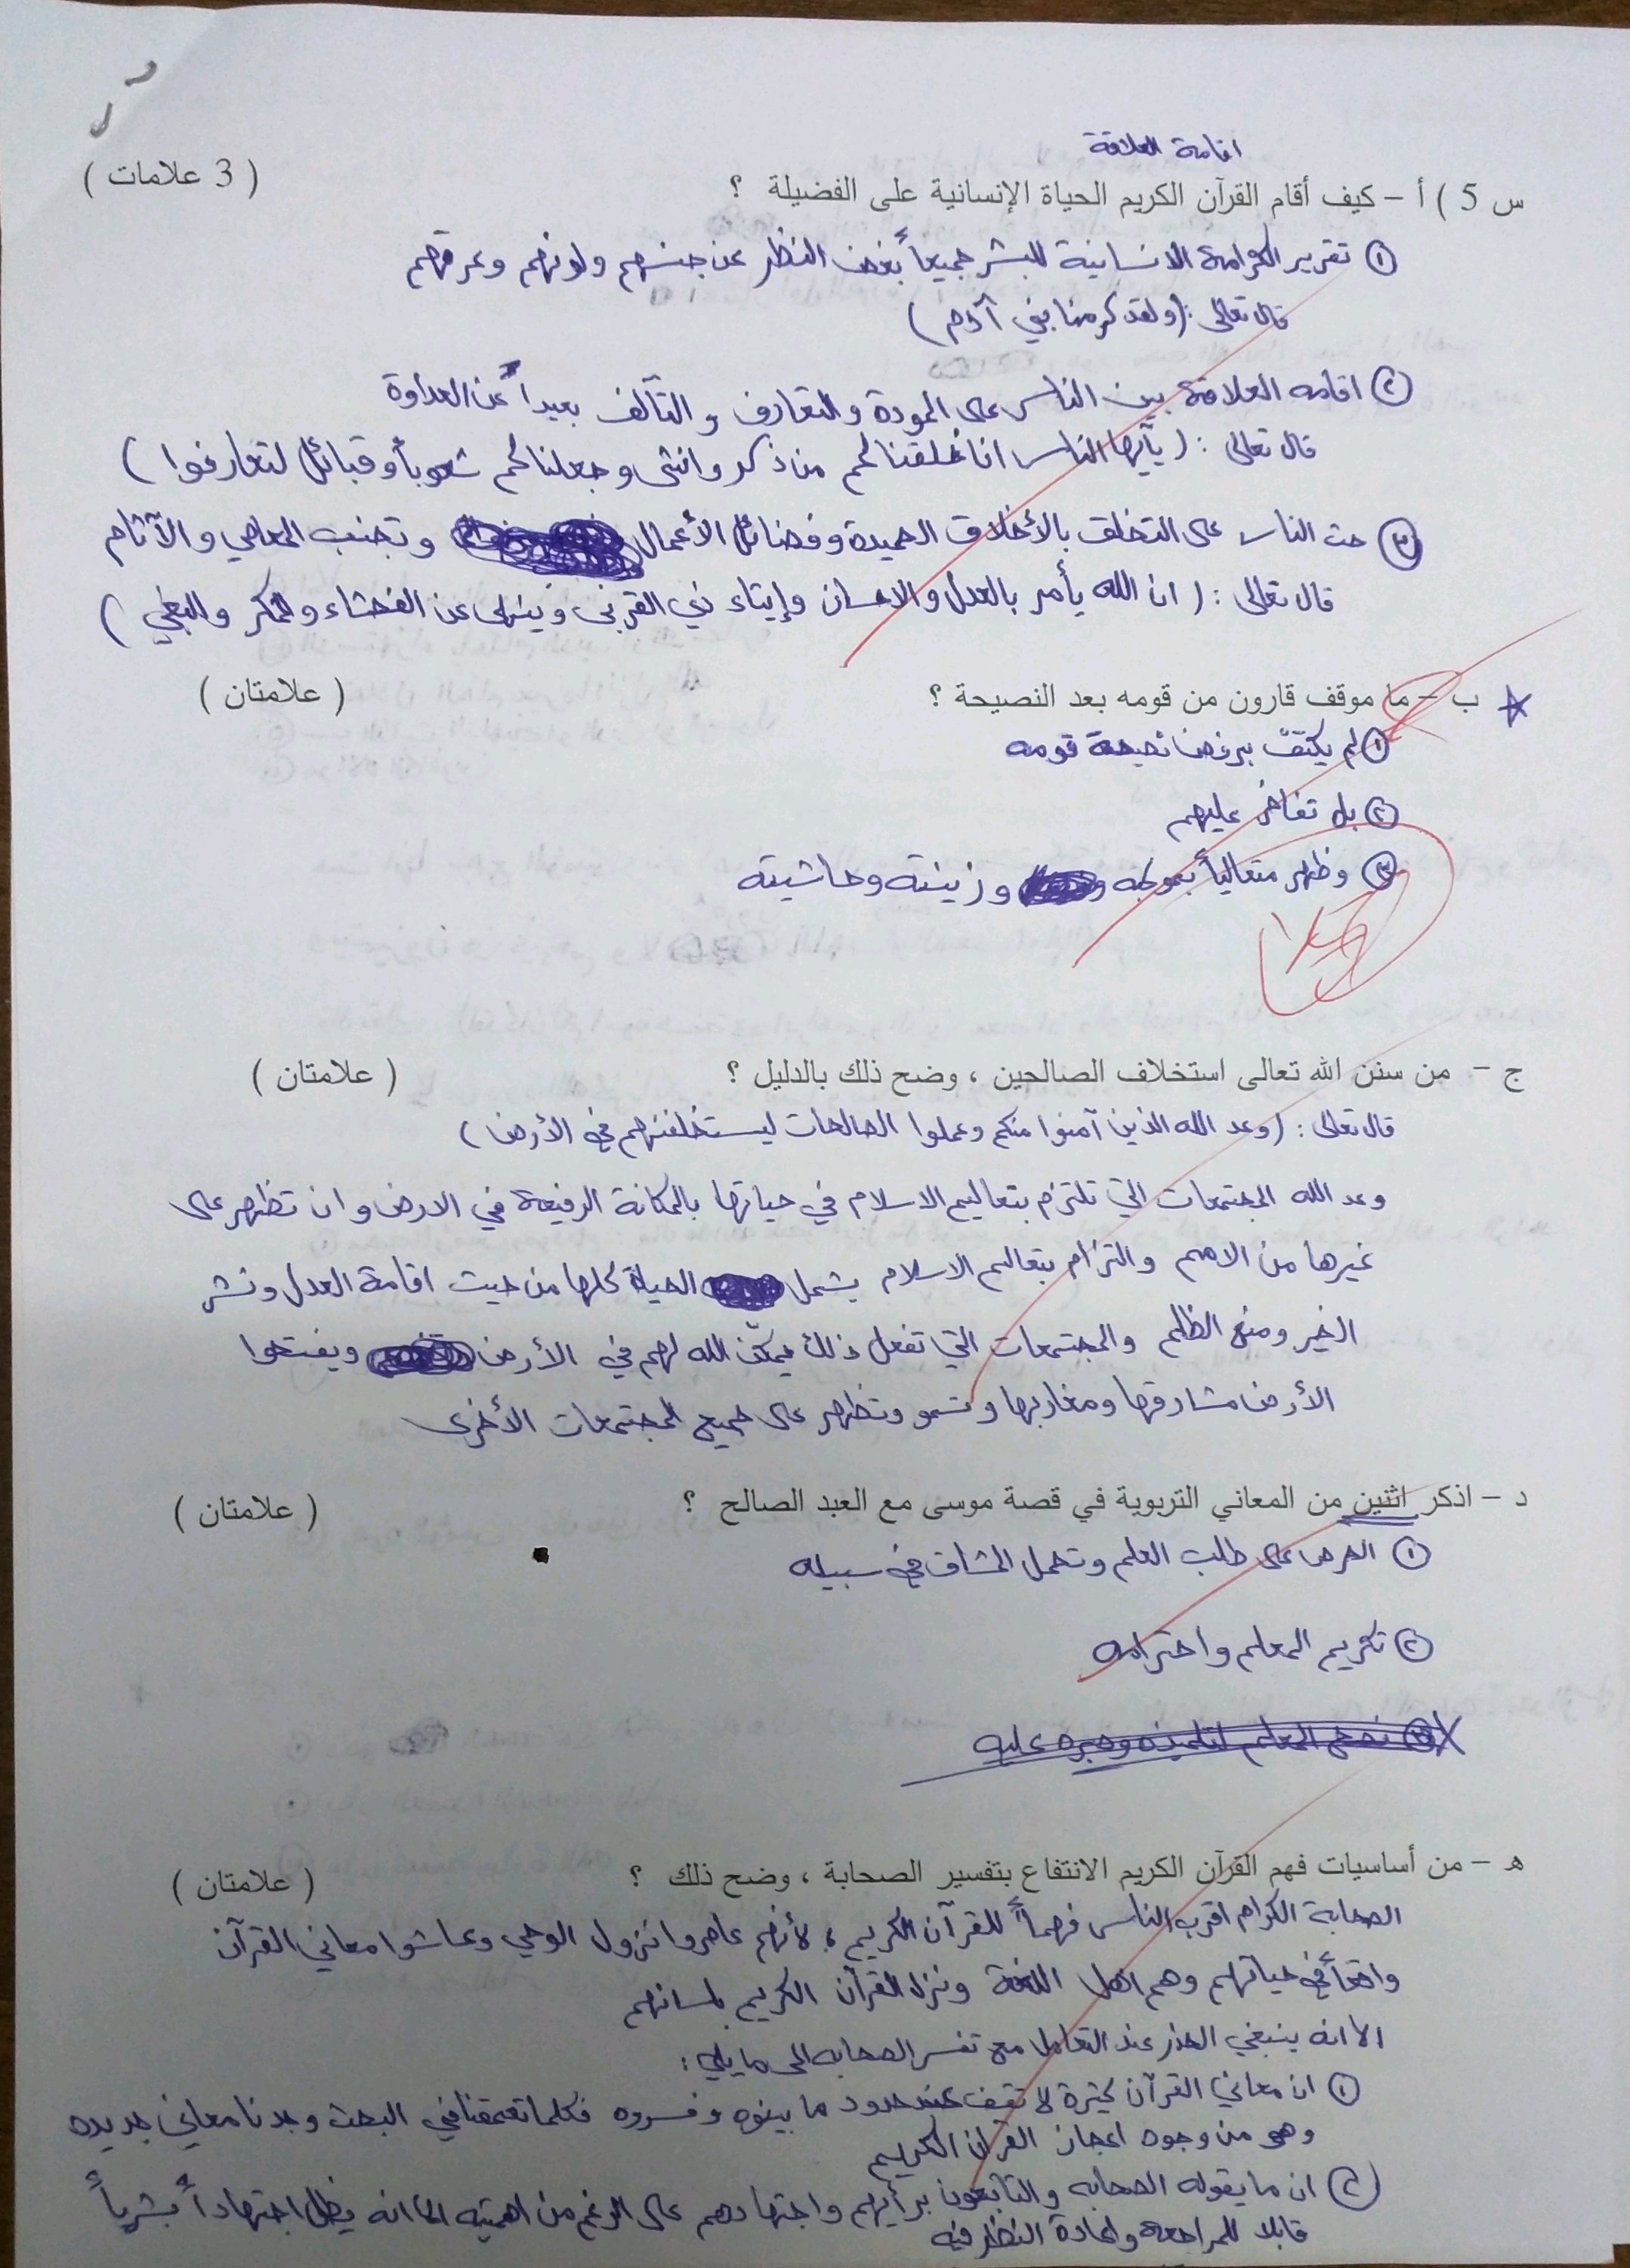 اقامة العلاقة
س 5 ) أ – كيف أقام القرآن الكريم الحياة الإنسانية على الفضيلة ؟ ( 3 علامات )
① تقرير الكرامة الانسانية للبشر جميعاً بغض النظر عن جنسهم ولونهم وعرقهم
قال تعالى : ( ولقد كرمنا بني آدم )
② اقامه العلاقة بين الناس على المودة والتعارف والتآلف بعيداً عن العداوة
قال تعالى : ( يأيها الناس انا خلقناكم من ذكر وانثى وجعلناكم شعوباً وقبائل لتعارفوا )
③ حث الناس على التخلق بالأخلاق الحميدة وفضائل الأعمال وتجنب المعاصي والآثام
قال تعالى : ( ان الله يأمر بالعدل والاحسان وإيتاء ذي القربى وينهى عن الفحشاء والمنكر والبغي )
ب – ما موقف قارون من قومه بعد النصيحة ؟ ( علامتان )
① لم يكتف برفض نصيحة قومه
② بل تفاخر عليهم
③ وظهر متعالياً بموكبه وزينته وحاشيته
ج – من سنن الله تعالى استخلاف الصالحين ، وضح ذلك بالدليل ؟ ( علامتان )
قال تعالى : ( وعد الله الذين آمنوا منكم وعملوا الصالحات ليستخلفنهم في الأرض )
وعد الله المجتمعات التي تلتزم بتعاليم الاسلام في حياتها بالمكانة الرفيعة في الارض وان تظهر على
غيرها من الامم والتزام بتعاليم الاسلام يشمل الحياة كلها من حيث اقامة العدل ونشر
الخير ومنع الظلم والمجتمعات التي تفعل ذلك يمكّن الله لهم في الأرض ويفتحوا
الأرض مشارقها ومغاربها وتسمو وتظهر على جميع المجتمعات الأخرى
د – اذكر اثنين من المعاني التربوية في قصة موسى مع العبد الصالح ؟ ( علامتان )
① الحرص على طلب العلم وتحمل المشاق في سبيله
② تكريم المعلم واحترامه
③ نصح المعلم لتلميذه وصبره عليه
هـ – من أساسيات فهم القرآن الكريم الانتفاع بتفسير الصحابة ، وضح ذلك ؟ ( علامتان )
الصحابة الكرام اقرب الناس فهماً للقرآن الكريم ، لأنهم عاصروا نزول الوحي وعاشوا معاني القرآن
واقعاً في حياتهم وهم اهل اللغة ونزل القرآن الكريم بلسانهم
الا انه ينبغي الحذر عند التعامل مع تفسر الصحابه الى ما يلي :
① ان معاني القرآن كثيرة لا تقف عند حدود ما بينوه وفسروه فكلما تعمقنا في البحث وجدنا معاني جديده
وهو من وجوه اعجاز القران الكريم
② ان ما يقوله الصحابه والتابعون برأيهم واجتهادهم على الرغم من اهميته الا انه يظل اجتهاداً بشرياً
قابلا للمراجعة واعادة النظر فيه